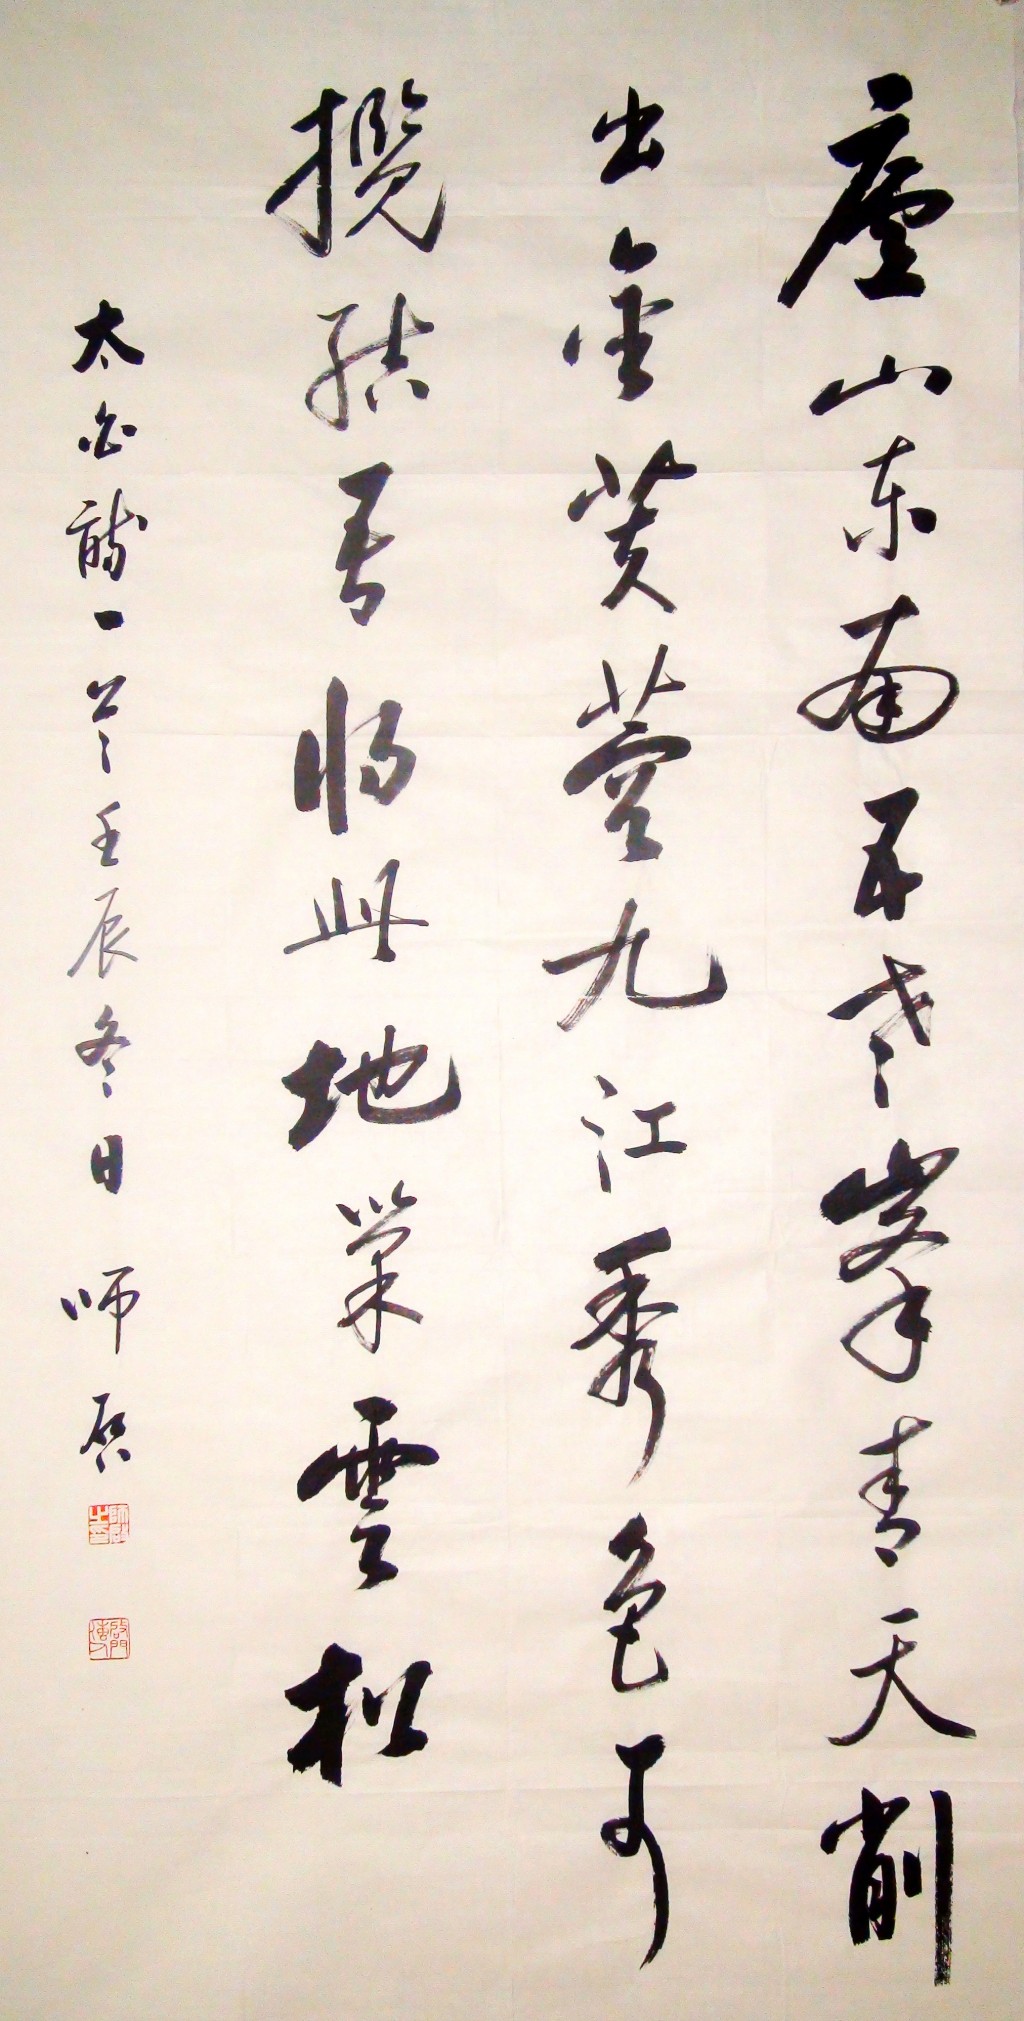 廬山东南五老峯青天削
出金芙蓉九江秀色可
攬結吾將此地巢雲松
太白詩一首壬辰冬日 师启